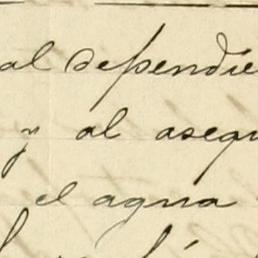 al dependie
y al asegu
el agua